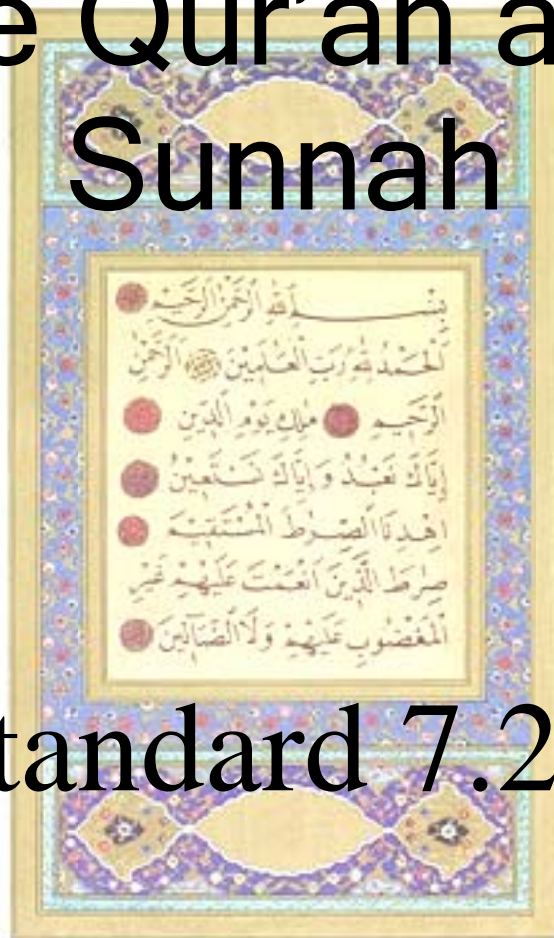 e Qur’an a
Sunnah
بِسْــــمِ اللهِ الرَّحْمٰنِ الرَّحِيمِ
اَلْحَمْدُ لِلّٰهِ رَبِّ الْعَالَمِينَ الرَّحْمٰنِ
الرَّحِيمِ مٰلِكِ يَوْمِ الدِّينِ
اِيَّاكَ نَعْبُدُ وَاِيَّاكَ نَسْتَعِينُ
اِهْدِنَا الصِّرٰطَ الْمُسْتَقِيمَ
صِرٰطَ الَّذِينَ اَنْعَمْتَ عَلَيْهِمْ غَيْرِ
الْمَغْضُوبِ عَلَيْهِمْ وَلَا الضَّٓالِّينَ
tandard 7.2